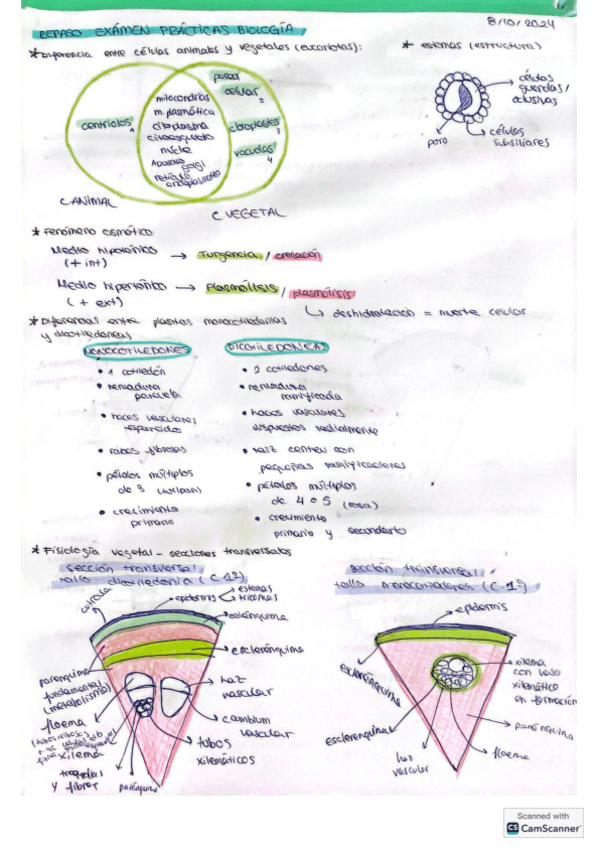 REPASO EXÁMEN PRÁCTICAS BIOLOGÍA
8/10/2024
* Diferencia entre células animales y vegetales (eucariotas):
* estomas (estructura)
pared
celular 2
mitocondrias
m. plasmática
citoplasma
citoesqueleto
núcleo
Aparato
golgi
retículo
endoplasmático
centriolos 1
cloroplastos 3
vacuolas 4
C ANIMAL
C VEGETAL
células
guardas/
oclusivas
células
subsiliares
poro
* Fenómeno osmótico:
Medio hipotónico → Turgencia / crenación
(+ int)
Medio hipertónico → Plasmólisis / plasmólisis
(+ ext)
↳ deshidratación = muerte celular
* Diferencias entre plantas monocotiledonias
y dicotiledoneas
MONOCOTILEDONES
• 1 cotiledón
• nervadura
paralela
• haces vasculares
esparcidos
• raices fibrosas
• pétalos múltiplos
de 3 (tulipan)
• crecimiento
primario
DICOTILEDONEAS
• 2 cotiledones
• nervadura
ramificada
• haces vasculares
dispuestos radialmente
• raiz central con
pequeñas ramificaciones
• pétalos múltiplos
de 4 o 5 (rosa)
• crecimiento
primario y secundario
* Fisiología vegetal - secciones transversales
sección transversal
tallo dicotiledonia (C. 1º)
cutícula
epidermis
estomas
tricomas
colénquima
esclerénquima
haz
vascular
cambium
vascular
tubos
xilemáticos
parénquima
fundamental
(metabolismo)
floema
xilema
traqueidas
y fibras
parénquima
sección transversal
tallo monocotiledones (C. 1º)
epidermis
esclerénquima
esclerenquima
haz
vascular
xilema
con vaso
xilemático
en formación
parénquima
floema
Scanned with
CS CamScanner